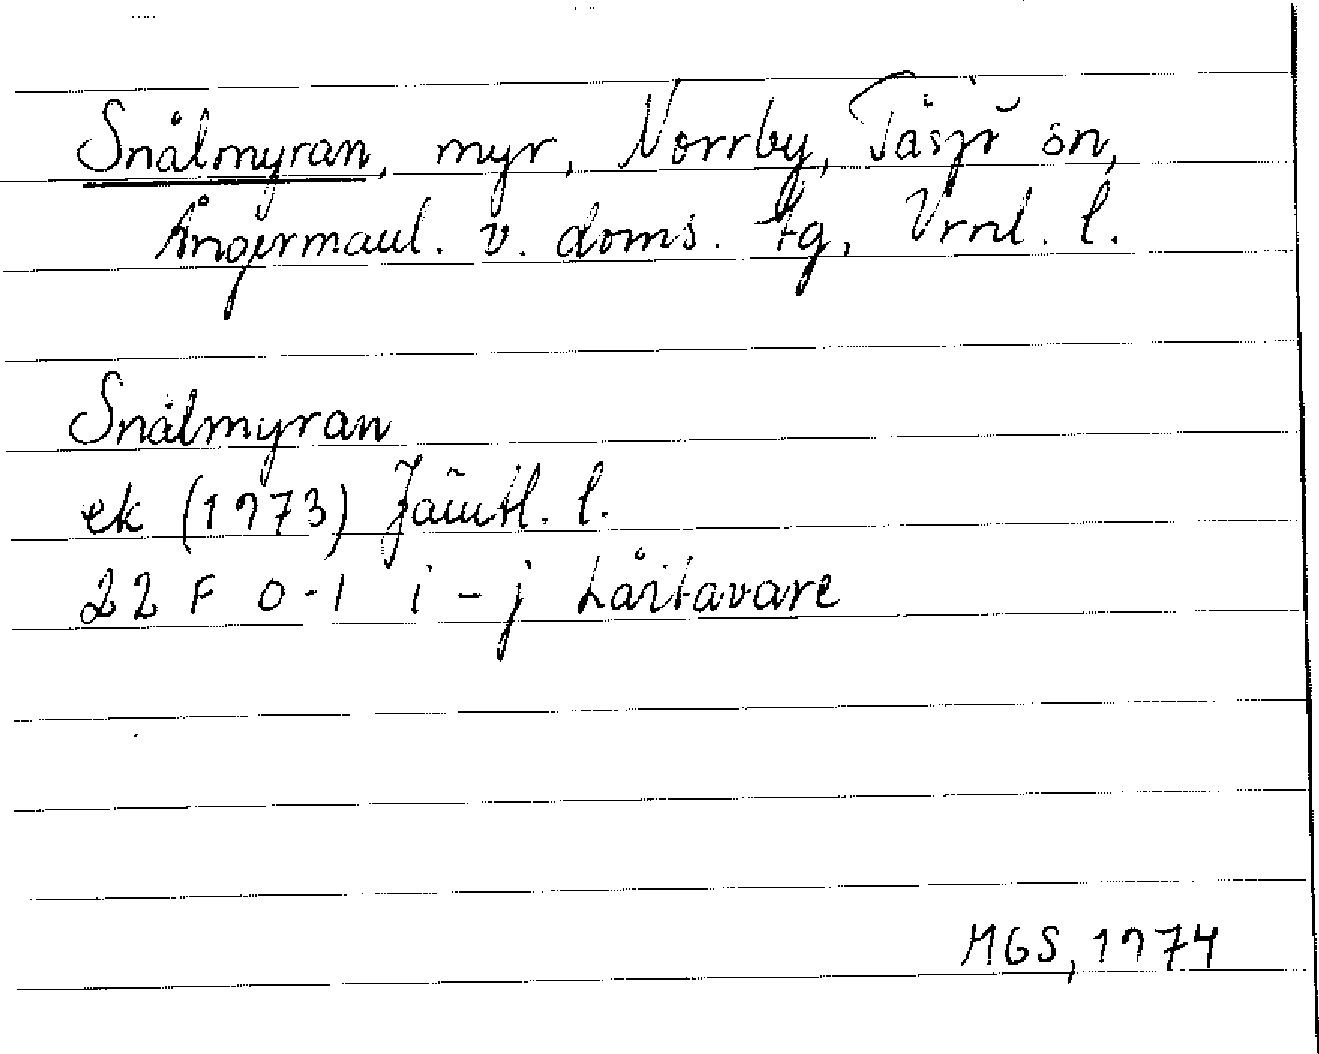 Snålmyran, myr, Norrby, Tåsjö sn,
Ångermanl. v. doms. tg, Vrnl. l.
Snålmyran
ek (1973) Jämtl. l.
22 F 0-1 i-j Låitavare
MGS, 1974